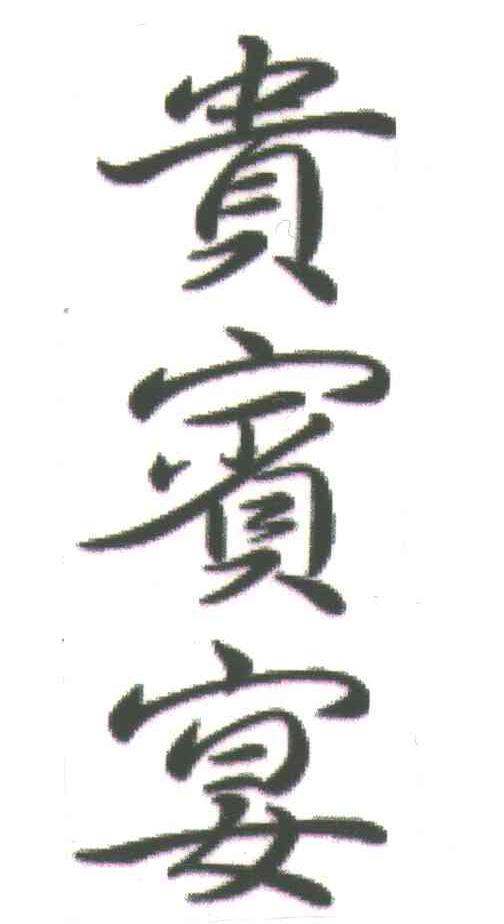 貴賓宴